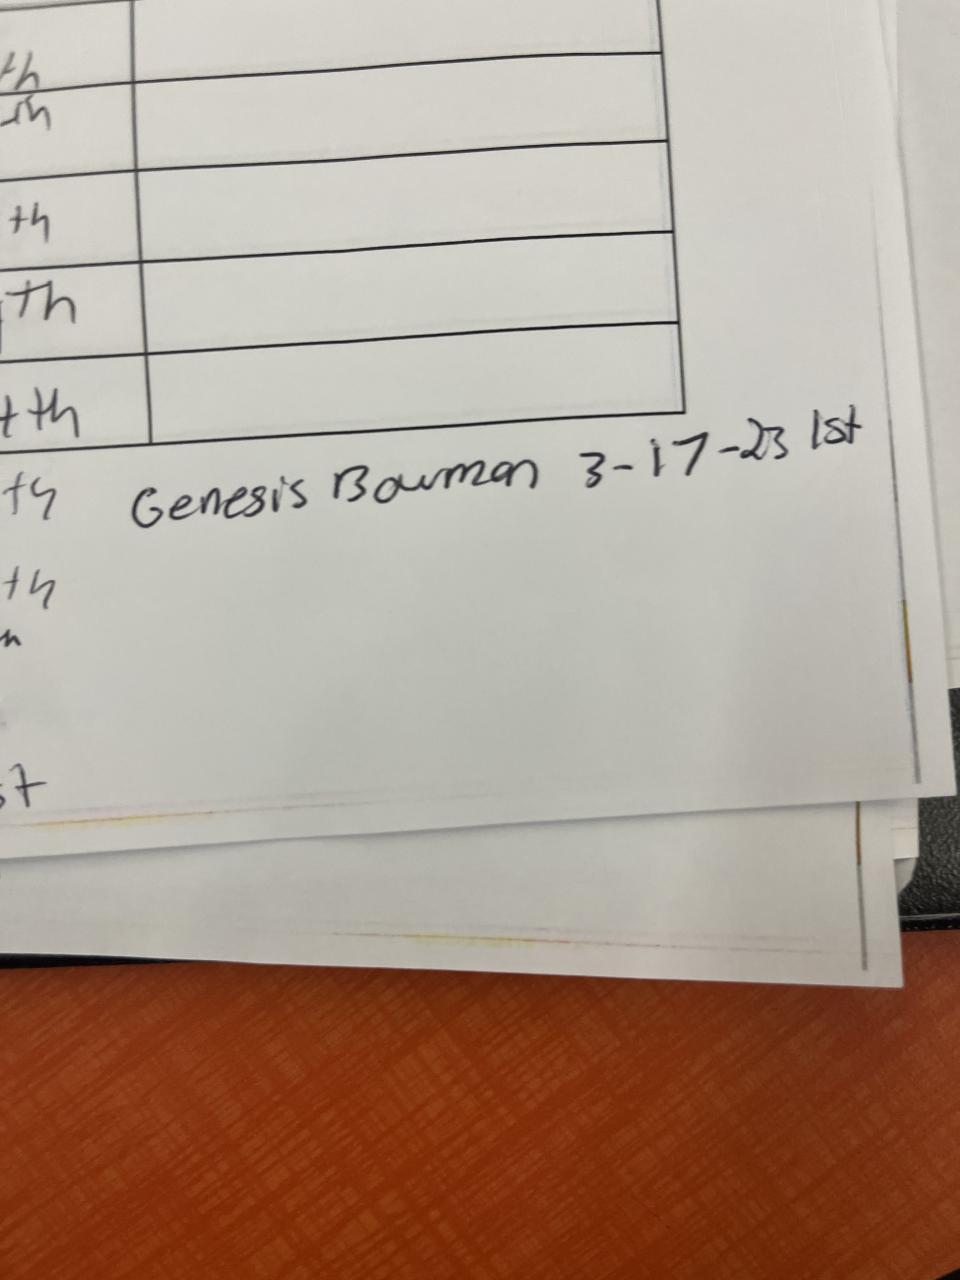 th
th
th
th
th
th Genesis Bowman 3-17-23 1st
th
st